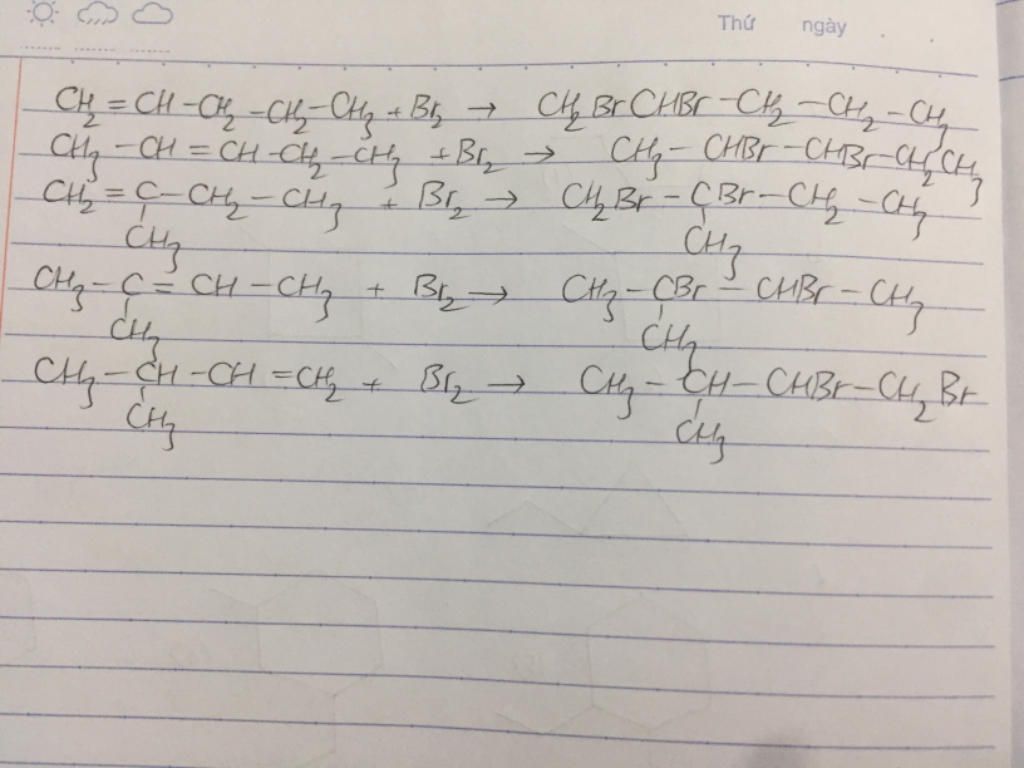 Thứ ngày
CH₂ = CH - CH₂ - CH₂ - CH₃ + Br₂ → CH₂BrCHBr - CH₂ - CH₂ - CH₃
CH₃ - CH = CH - CH₂ - CH₃ + Br₂ → CH₃ - CHBr - CHBr - CH₂CH₃
CH₂ = C - CH₂ - CH₃ + Br₂ → CH₂Br - CBr - CH₂ - CH₃
CH₃ CH₃
CH₃ - C = CH - CH₃ + Br₂ → CH₃ - CBr - CHBr - CH₃
CH₃ CH₃
CH₃ - CH - CH = CH₂ + Br₂ → CH₃ - CH - CHBr - CH₂Br
CH₃ CH₃